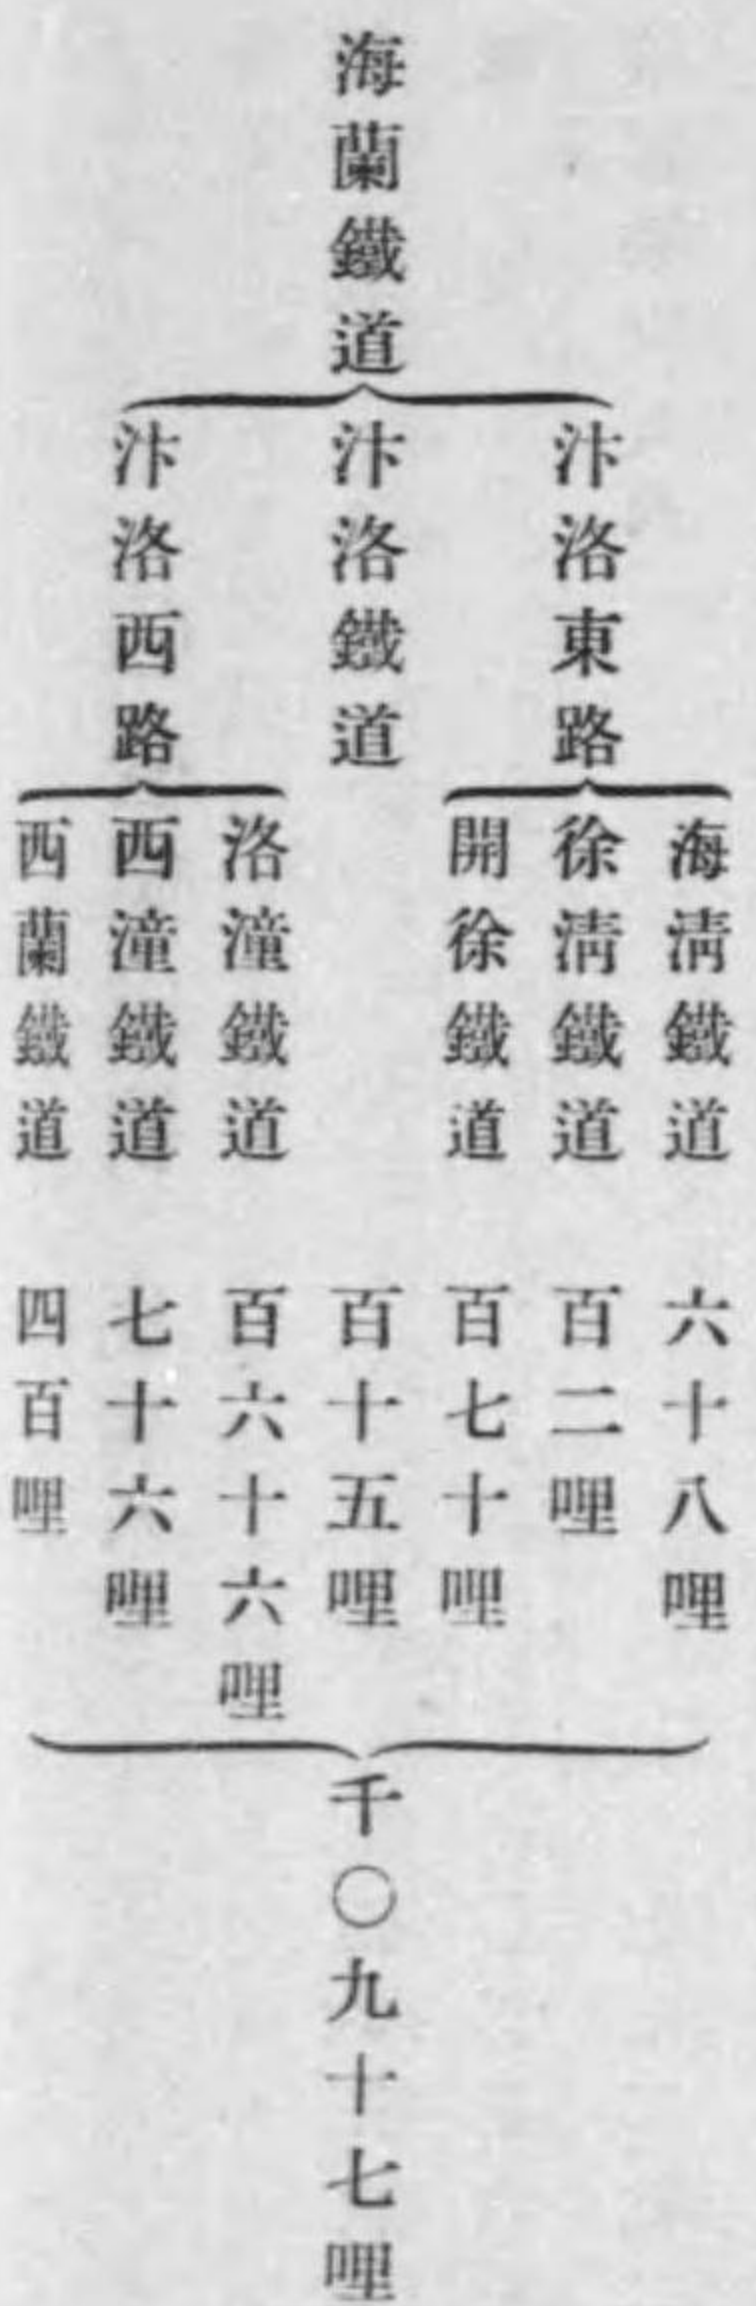 海蘭鐵道
汴洛東路
海淸鐵道 六十八哩
徐淸鐵道 百二哩
開徐鐵道 百七十哩
汴洛鐵道 百十五哩
汴洛西路
洛潼鐵道 百六十六哩
西潼鐵道 七十六哩
西蘭鐵道 四百哩
千〇九十七哩